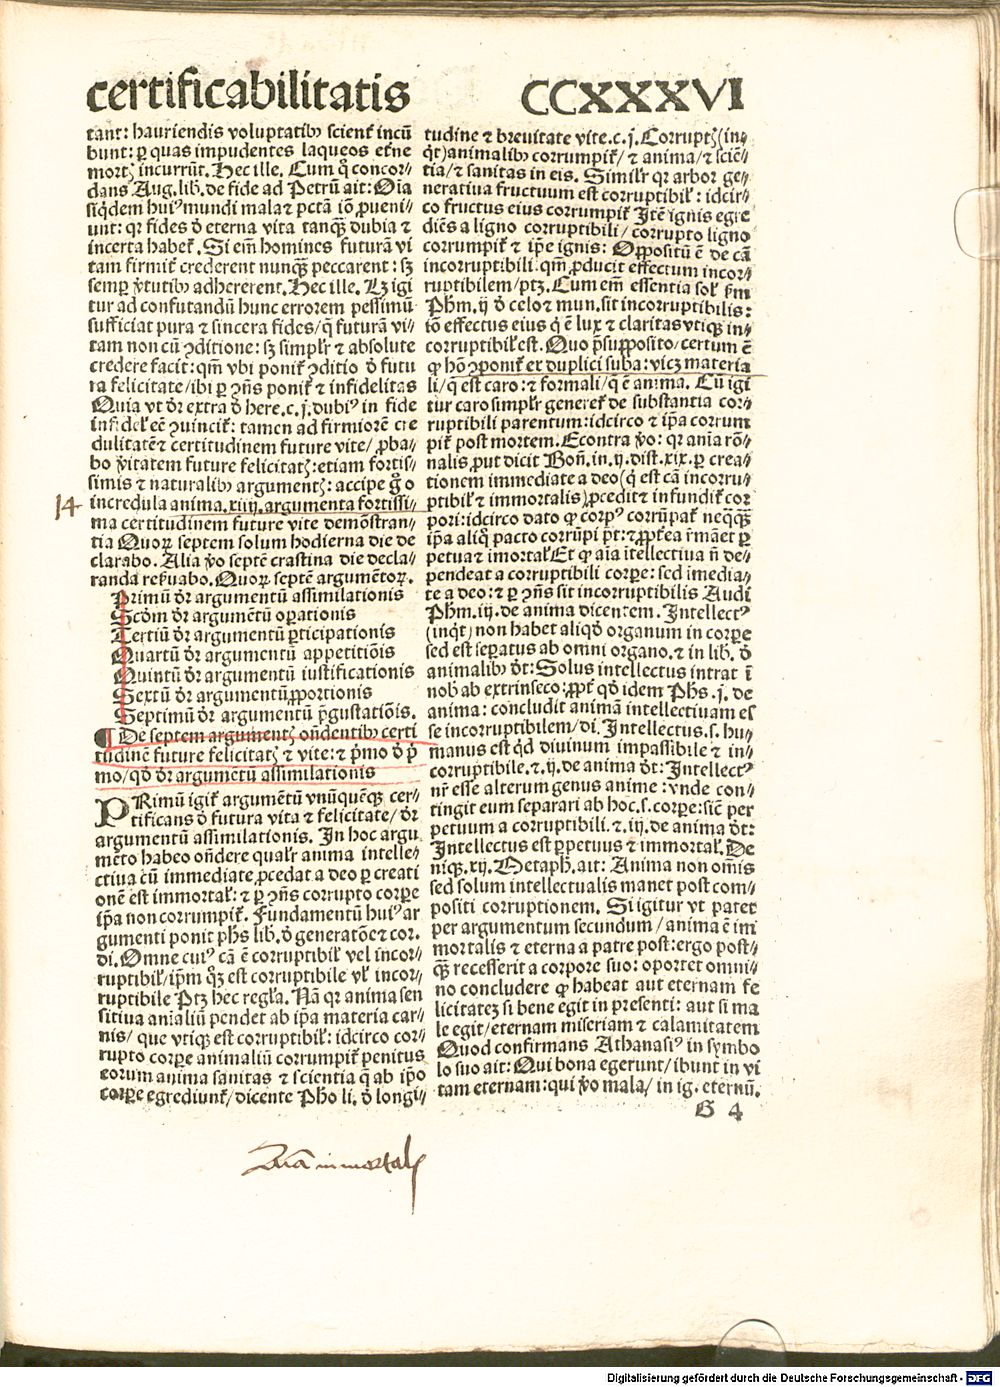 certificabilitatis CCXXXVI
tant: hauriendis voluptatibꝯ scient̄ incū
bunt: ꝑ quas impudentes laqueos et̄ne
mort̄ꝭ incurrūt. Hec ille. Cum q̊ concor⸗
dans Aug. lib. de fide ad Petrū ait: Oīa
siq̇dem huiꝰ mundi mala ⁊ pctā iō ꝓueni⸗
unt: qꝛ fides d̓ eterna vita tanqꝫ̄ dubia ⁊
incerta habet̉. Si em̄ homines futurā vi
tam firmit̉ crederent nunqꝫ̄ peccarent: sꝫ
semꝑ v̓tutibꝯ adhererent. Hec ille. Lꝫ igi
tur ad confutandū hunc errorem pessimū
sufficiat pura ⁊ sincera fides/ q̄ futurā vi⸗
tam non cū ꝯditione: sꝫ simpl̉r ⁊ absolute
credere facit: qm̄ vbi ponit̉ ꝯditio d̓ futu
ra felicitate/ ibi ꝑ ꝯn̄s ponit̉ ⁊ infidelitas
Quia vt dr̄ extra d̓ here. c. j. dubiꝰ in fide
infidel̓ eē ꝯuincit̉: tamen ad firmiorē cre
dulitatē ⁊ certitudinem future vite/ ꝓba⸗
bo v̓itatem future felicitatꝭ: etiam fortis⸗
simis ⁊ naturalibꝯ argumentꝭ: accipe g̊ o
incredula anima. xiiij. argumenta fortissi⸗
14
ma certitudinem future vite demōstran⸗
tia Quoꝝ septem solum hodierna die de
clarabo. Alia v̓o septē crastina die decla⸗
randa res̓uabo. Quoꝝ septē argumētoꝝ.
Primū dr̄ argumentū assimilationis
Scd̓m dr̄ argumentū oꝑationis
Tertiū dr̄ argumentū ꝑticipationis
Quartū dr̄ argumentū appetitiōis
Quintū dr̄ argumentū iustificationis
Sextū dr̄ argumentū ꝓportionis
Septimū dr̄ argumentū p̄gustatiōis.
¶ De septem argumentꝭ on̄dentibꝯ certi
tudinē future felicitatꝭ ⁊ vite: ⁊ p̓mo d̓ p̓
mo/ qd̓ dr̄ argumētū assimilationis
PRimū igit̉ argumētū vnūquēqꝫ cer⸗
tificans d̓ futura vita ⁊ felicitate/ dr̄
argumentū assimilationis. In hoc argu
mēto habeo on̄dere qual̓r anima intelle⸗
ctiua cū immediate ꝓcedat a deo ꝑ creati
onē est immortal̓: ⁊ ꝑ ꝯn̄s corrupto corꝑe
ip̄a non corrumpit̉. Fundamentū huiꝰ ar
gumenti ponit ph̄s lib. d̓ generatōe ⁊ cor.
di. Omne cuiꝰ cā ē corruptibil̓ vel incor⸗
ruptibil̓/ ip̄m qꝫ est corruptibile vl̓ incor⸗
ruptibile Ptꝫ hec regl̓a. Nā qꝛ anima sen
sitiua aīaliū pendet ab ip̄a materia car⸗
nis/ que vtiqꝫ est corruptibil̓: idcirco cor⸗
rupto corꝑe animaliū corrumpit̉ penitus
eorum anima sanitas ⁊ scientia q̄ ab ip̄o
corꝑe egrediunt̉/ dicente Ph̄o li. d̓ longi⸗
tudine ⁊ breuitate vite. c. j. Corruptꝭ (in⸗
q̇t) animalibꝯ corrumpit̉/ ⁊ anima/ ⁊ sciē⸗
tia/ ⁊ sanitas in eis. Simil̓r qꝛ arbor ge⸗
neratiua fructuum est corruptibil̓: idcir⸗
co fructus eius corrumpit̉ Itē ignis egre
diēs a ligno corruptibili/ corrupto ligno
corrumpit̉ ⁊ ip̄e ignis: Oppositū ē de cā
incorruptibili. qm̄ ꝓducit effectum incor⸗
ruptibilem/ ptꝫ. Cum em̄ essentia sol̓ s̓m
Ph̄m ij d̓ celo ⁊ mun. sit incorruptibilis:
iō effectus eius q̄ ē lux ⁊ claritas vtiqꝫ in⸗
corruptibil̓ est. Quo p̄supposito/ certum ē
ꝙ hō ꝯponit̉ ex duplici suba: vicꝫ materia
li/ q̄ est caro: ⁊ formali/ q̄ ē anima. Cū igi
tur caro simpl̓r generet̉ de substantia cor⸗
ruptibili parentum: idcirco ⁊ ip̄a corrum
pit̉ post mortem. Econtra v̓o: qꝛ aīa rō⸗
nalis, put dicit Bon̄. in. ij. dist. xix. ꝑ crea⸗
tionem immediate a deo (q̇ est cā incorru⸗
ptibil̓ ⁊ immortalis) ꝓcedit ⁊ infundit̉ cor
pori: idcirco dato ꝙ corpꝰ corrūpat̉ neqꝫqꝫ̄
ip̄a aliq̊ pacto corrūpi p̄t: ⁊ ꝓpt̓ea r̓manet ꝑ
petua ⁊ īmortal̓ Et ꝙ aīa ītellectiua n̄ de⸗
pendeat a corruptibili corꝑe: sed īmedia⸗
te a deo: ⁊ ꝑ ꝯn̄s sit incorruptibilis Audi
Ph̄m. iij. de anima dicentem. Intellectꝰ
(inq̇t) non habet aliqd̓ organum in corꝑe
sed est seꝑatus ab omni organo. ⁊ in lib. d̓
animalibꝯ dt̄: Solus intellectus intrat ī
nob̓ ab extrinseco: ꝓpt̓ qd̓ idem Ph̄s. j. de
anima: concludit animā intellectiuam es
se incorruptibilem/ di. Intellectus. s. hu⸗
manus est qd̓ diuinum impassibile ⁊ in⸗
corruptibile. ⁊. ij. de anima dt̄: Intellectꝰ
nr̄ esse alterum genus anime: vnde con⸗
tingit eum separari ab hoc. s. corꝑe: sicut per
petuum a corruptibili. ⁊. iij. de anima dt̄:
Intellectus est ꝑpetuus ⁊ immortal̓. De
niqꝫ. xij. Metaph. ait: Anima non om̄is
sed solum intellectualis manet post com⸗
positi corruptionem. Si igitur vt patet
per argumentum secundum/ anima ē im
mortalis ⁊ eterna a patre post: ergo post⸗
qꝫ̄ recesserit a corpore suo: oportet omni⸗
no concludere ꝙ habeat aut eternam fe
licitatem si bene egit in presenti: aut si ma
le egit/ eternam miseriam ⁊ calamitatem
Quod confirmans Athanasiꝰ in symbo
lo suo ait: Qui bona egerunt/ ibunt in vi
tam eternam: qui v̓o mala/ in ig. eternū.
G 4
immortal̓
Digitalisierung gefördert durch die Deutsche Forschungsgemeinschaft - DFG